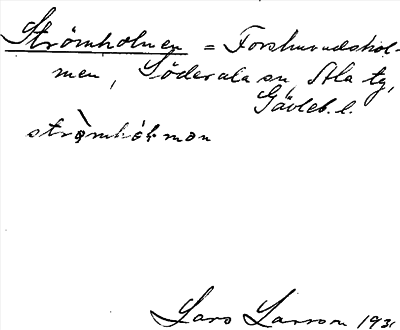 Strömholmen = Forshuvudshol-
men, Söderala sn, Ala tg,
Gävleb. l.
strömhólmən
Lars Larsson 1931